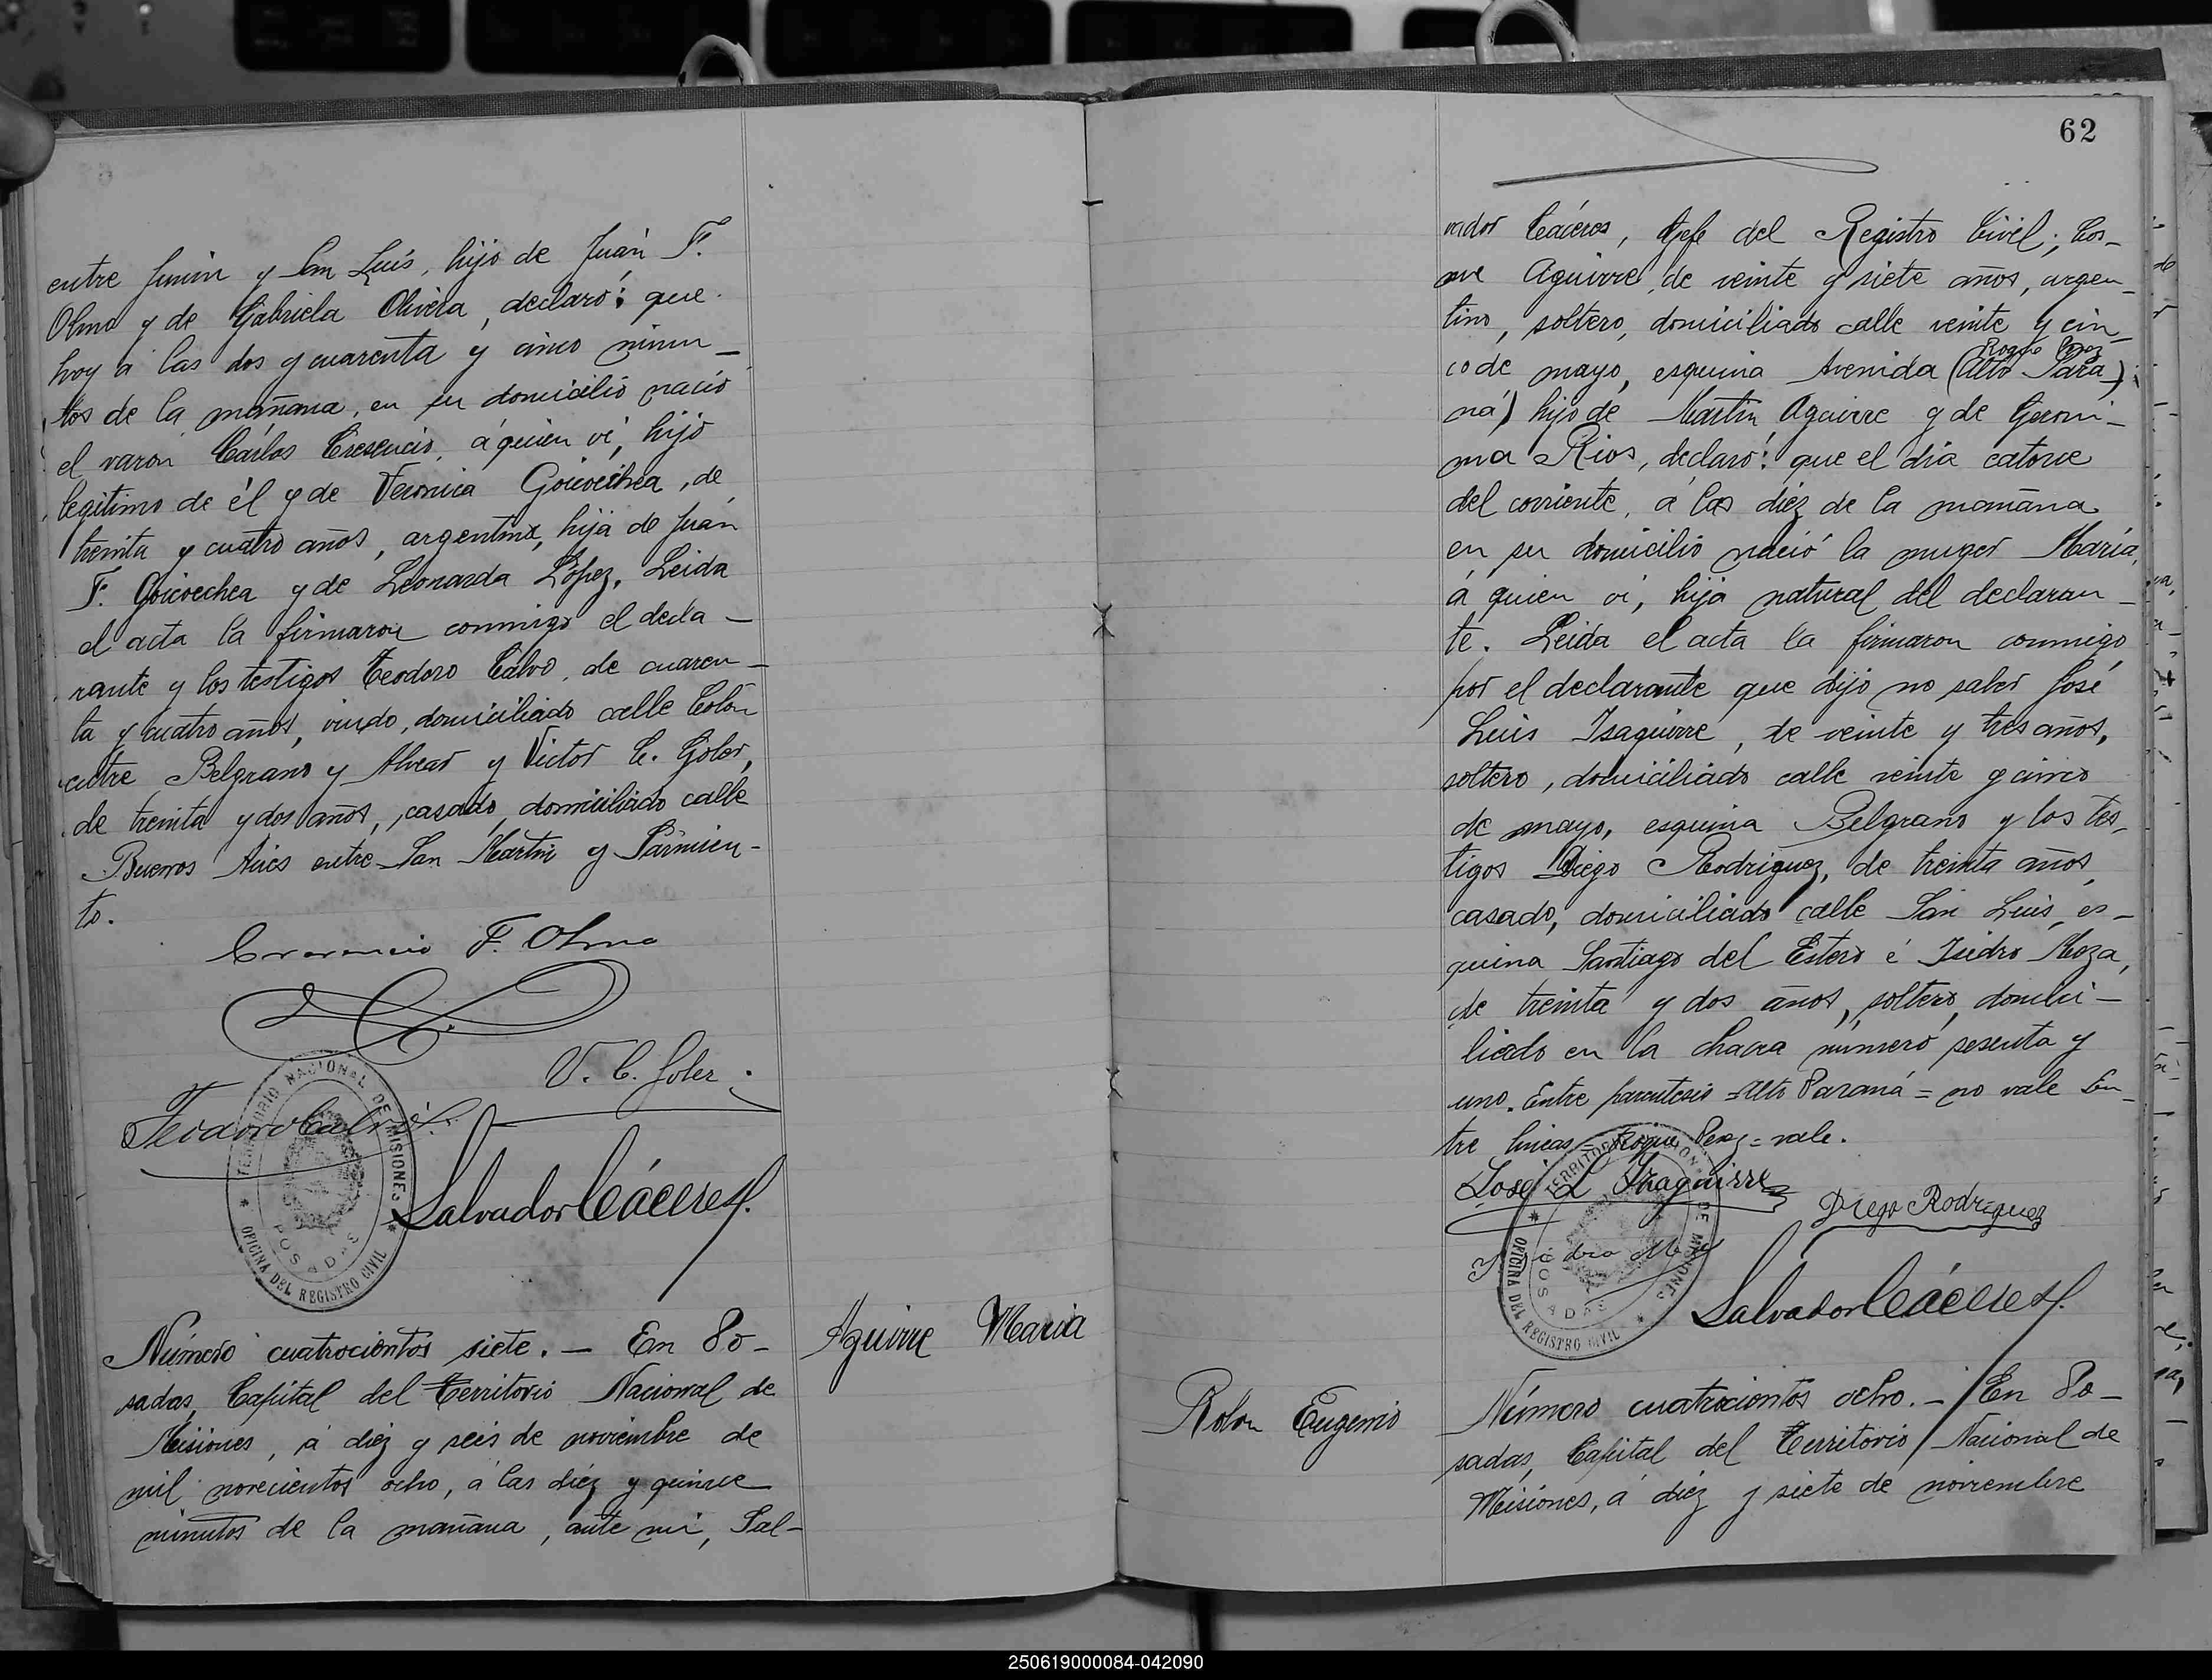 entre Junin y San Luis, hijo de Juan F.
Olmo y de Gabriela Olivera, declaró: que
hoy á las dos y cuarenta y cinco minu_
tos de la mañana, en su domicilio nació
el varon Cárlos Cresencio, á quien ví, hijo
legitimo de él y de Veronica Goicoechea, de
treinta y cuatro años, argentina, hija de Juan
F. Goicoechea y de Leonarda López. Leida
el acta la firmaron conmigo el decla_
rante y los testigos Teodoro Calvo, de cuaren_
ta y cuatro años, viudo, domiciliado calle Colón
entre Belgrano y Alvear y Victor C. Goler,
de treinta y dos años, casado, domiciliado calle
Buenos Aires entre San Martin y Sarmien-
to.
F. Olmo
V. C. Goler
Teodoro Calvo
TERRITORIO NACIONAL DE MISIONES
POSADAS
* OFICINA DEL REGISTRO CIVIL *
Salvador Cáceres
Número cuatrocientos siete. — En Po-
sadas, Capital del Territorio Nacional de
Misiones, á diez y seis de noviembre de
mil novecientos ocho, á las diez y quince
minutos de la mañana, ante mi, Sal-
Aguirre Maria
62
vador Cáceres, Gefe del Registro Civil; Cos_
me Aguirre, de veinte y siete años, argen_
tino, soltero, domiciliado calle veinte y cin_
Roque Perez
co de mayo, esquina Avenida (Alto Para_
ná) hijo de Martin Aguirre y de Geroni_
ma Rios, declaró: que el dia catorce
del corriente, á las diez de la mañana
en su domicilio nació la muger María,
á quien ví, hija natural del declaran_
te. Leida el acta la firmaron conmigo
por el declarante que dijo no saber José
Luis Isaguirre, de veinte y tres años,
soltero, domiciliado calle veinte y cinco
de mayo, esquina Belgrano y los tes_
tigos Diego Rodriguez, de treinta años,
casado, domiciliado calle San Luis, es_
quina Santiago del Estero é Isidro Meza,
de treinta y dos años, soltero, domici_
liado en la chacra número sesenta y
uno. Entre parentesis = Alto Paraná = no vale En_
tre lineas = Roque Perez = vale.
José L Ysaguirre
Diego Rodriguez
TERRITORIO NACIONAL DE MISIONES
POSADAS
OFICINA DEL REGISTRO CIVIL *
Salvador Cáceres
Rolon Eugenio
Número cuatrocientos ocho. — En Po_
sadas, Capital del Territorio Nacional de
Misiones, á diez y siete de noviembre
250619000084-042090